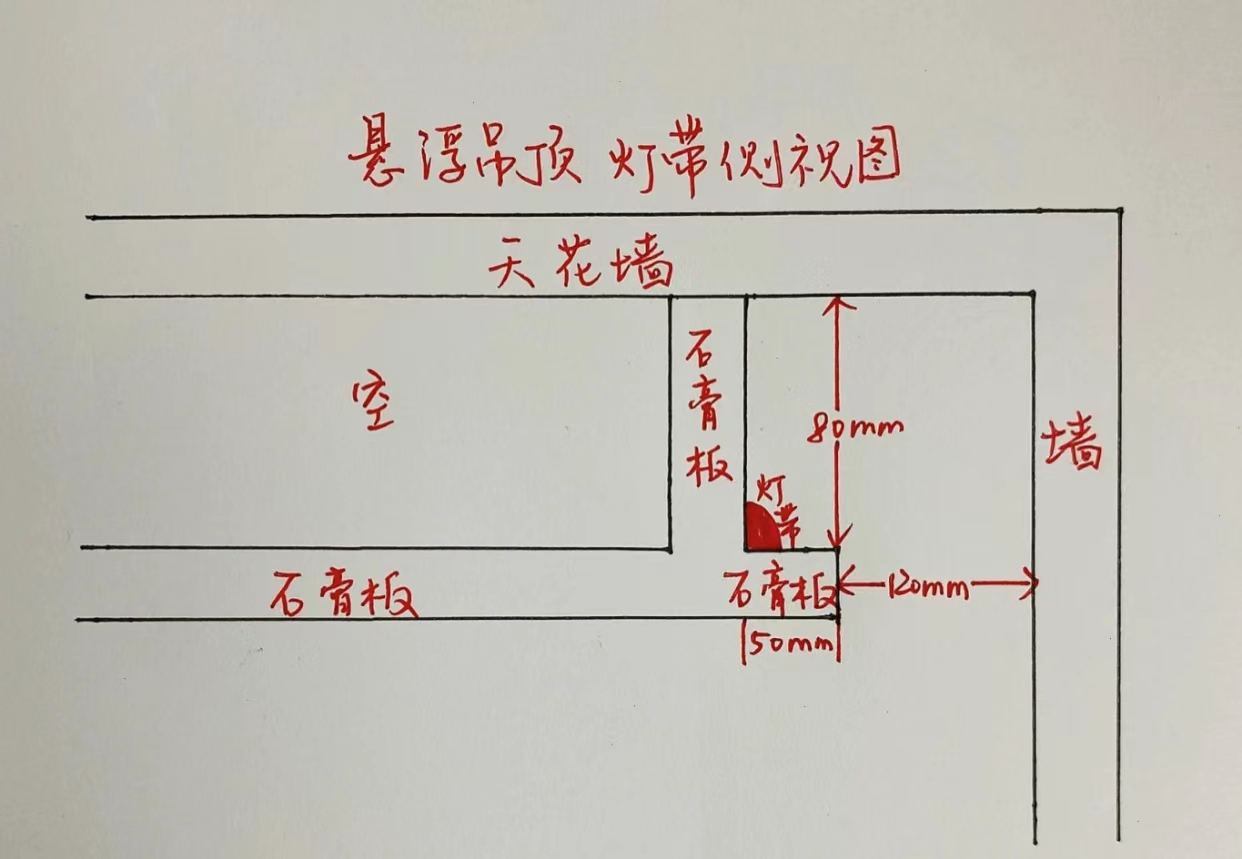 悬浮吊顶 灯带侧视图
天花墙
空
石膏板
80mm
墙
灯带
石膏板
石膏板
120mm
50mm